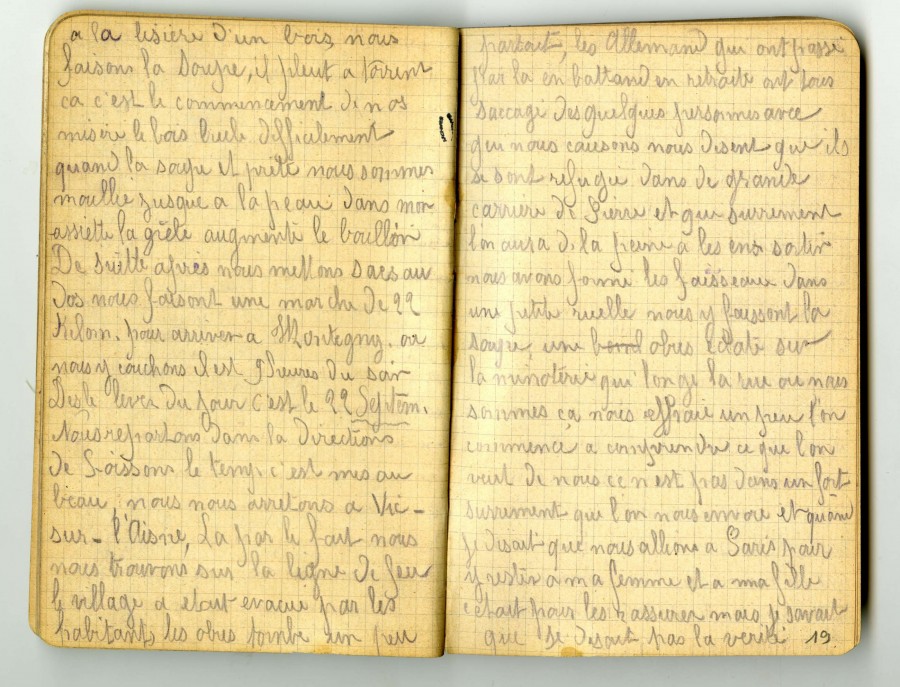 a la lisière d'un bois, nous
faisons la soupe, il pleut a torrent
ca c'est le commencement de nos
misère le bois brule difficilement
quand la soupe et prête nous sommes
mouillie jusque a la peau dans mon
assiette la grêle augmente le bouillon
De suitte après nous mettons sacs au
dos nous faisont une marche de 22
Kilom. pour arriver a Montegny. ou
nous y couchons il est 9 heures du soir
Dès le lever du jour c'est le 22 Septem.
Nous repartons dans la directions
de Soissons le temp c'est mis au
beau, nous nous arretons a Vic-
sur-l'Aisne, La par le fait nous
nous trouvons sur la ligne de feu
le village a etait evacué par les
habitants, les obus tombe un peu
partout, les Allemand qui ont passé
par la en battand en retraite ont tous
saccagé des quelques personnes avec
qui nous causons nous disent que ils
se sont refugié dans de grande
carriere de Pierre et que surrement
l'on aura de la peine a les ens sortir
nous avons formé les faisseau dans
une petite ruelle nous y faissont la
soupe, une bomb obus éclate sur
la minoterie qui longe la rue ou nous
sommes ça nous effraie un peu l'on
commence a comprendre ce que l'on
veut de nous ce n'est pas dans un fort
surrement que l'on nous envoie et quand
je disait que nous allions a Paris pour
y rester a ma femme et a ma fille
cetait pour les rassurer mais je savait
que je disait pas la verité 19